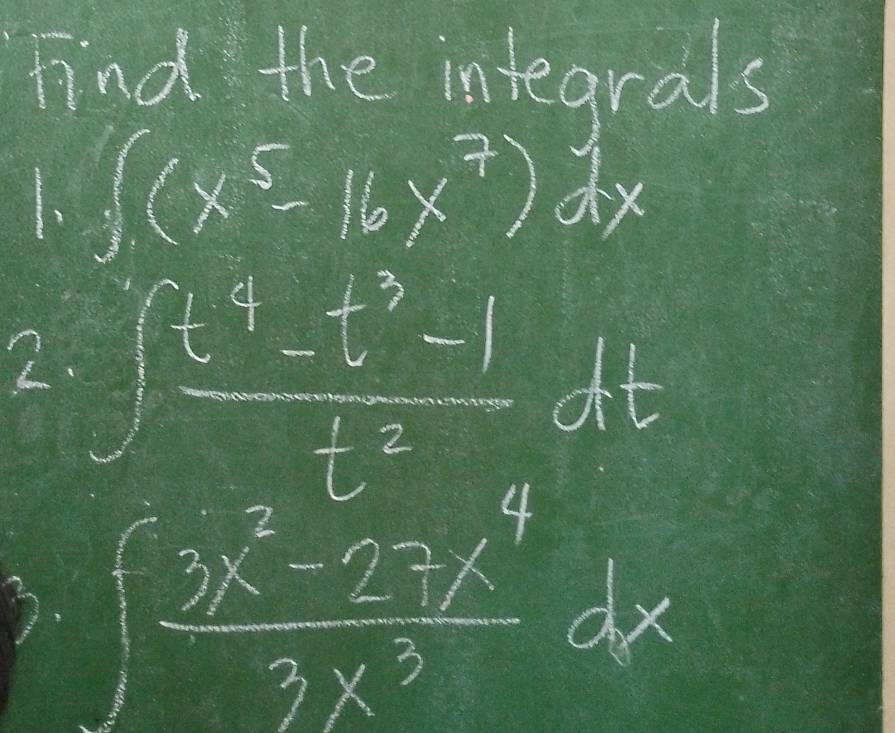 Find the integrals
1. ∫(x⁵ - 16x⁷) dx
2. ∫ (t⁴ - t³ - 1)/t² dt
3. ∫ (3x² - 27x⁴)/3x³ dx